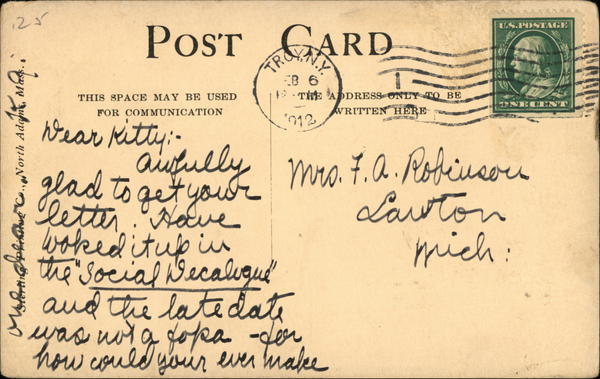 .25
POST CARD
THIS SPACE MAY BE USED
FOR COMMUNICATION
THE ADDRESS ONLY TO BE
WRITTEN HERE
TROY, N.Y.
FEB 6
1912
1
U.S. POSTAGE
ONE CENT
Dear Kitty:-
Awfully
glad to get your
letter. Have
woked it up in
the "Social Decalogue"
and the late date
was not a fopa - for
how could your ever make
one dear
North Adams, Mass.
Mrs. F. A. Robinson
Lawton
Mich: